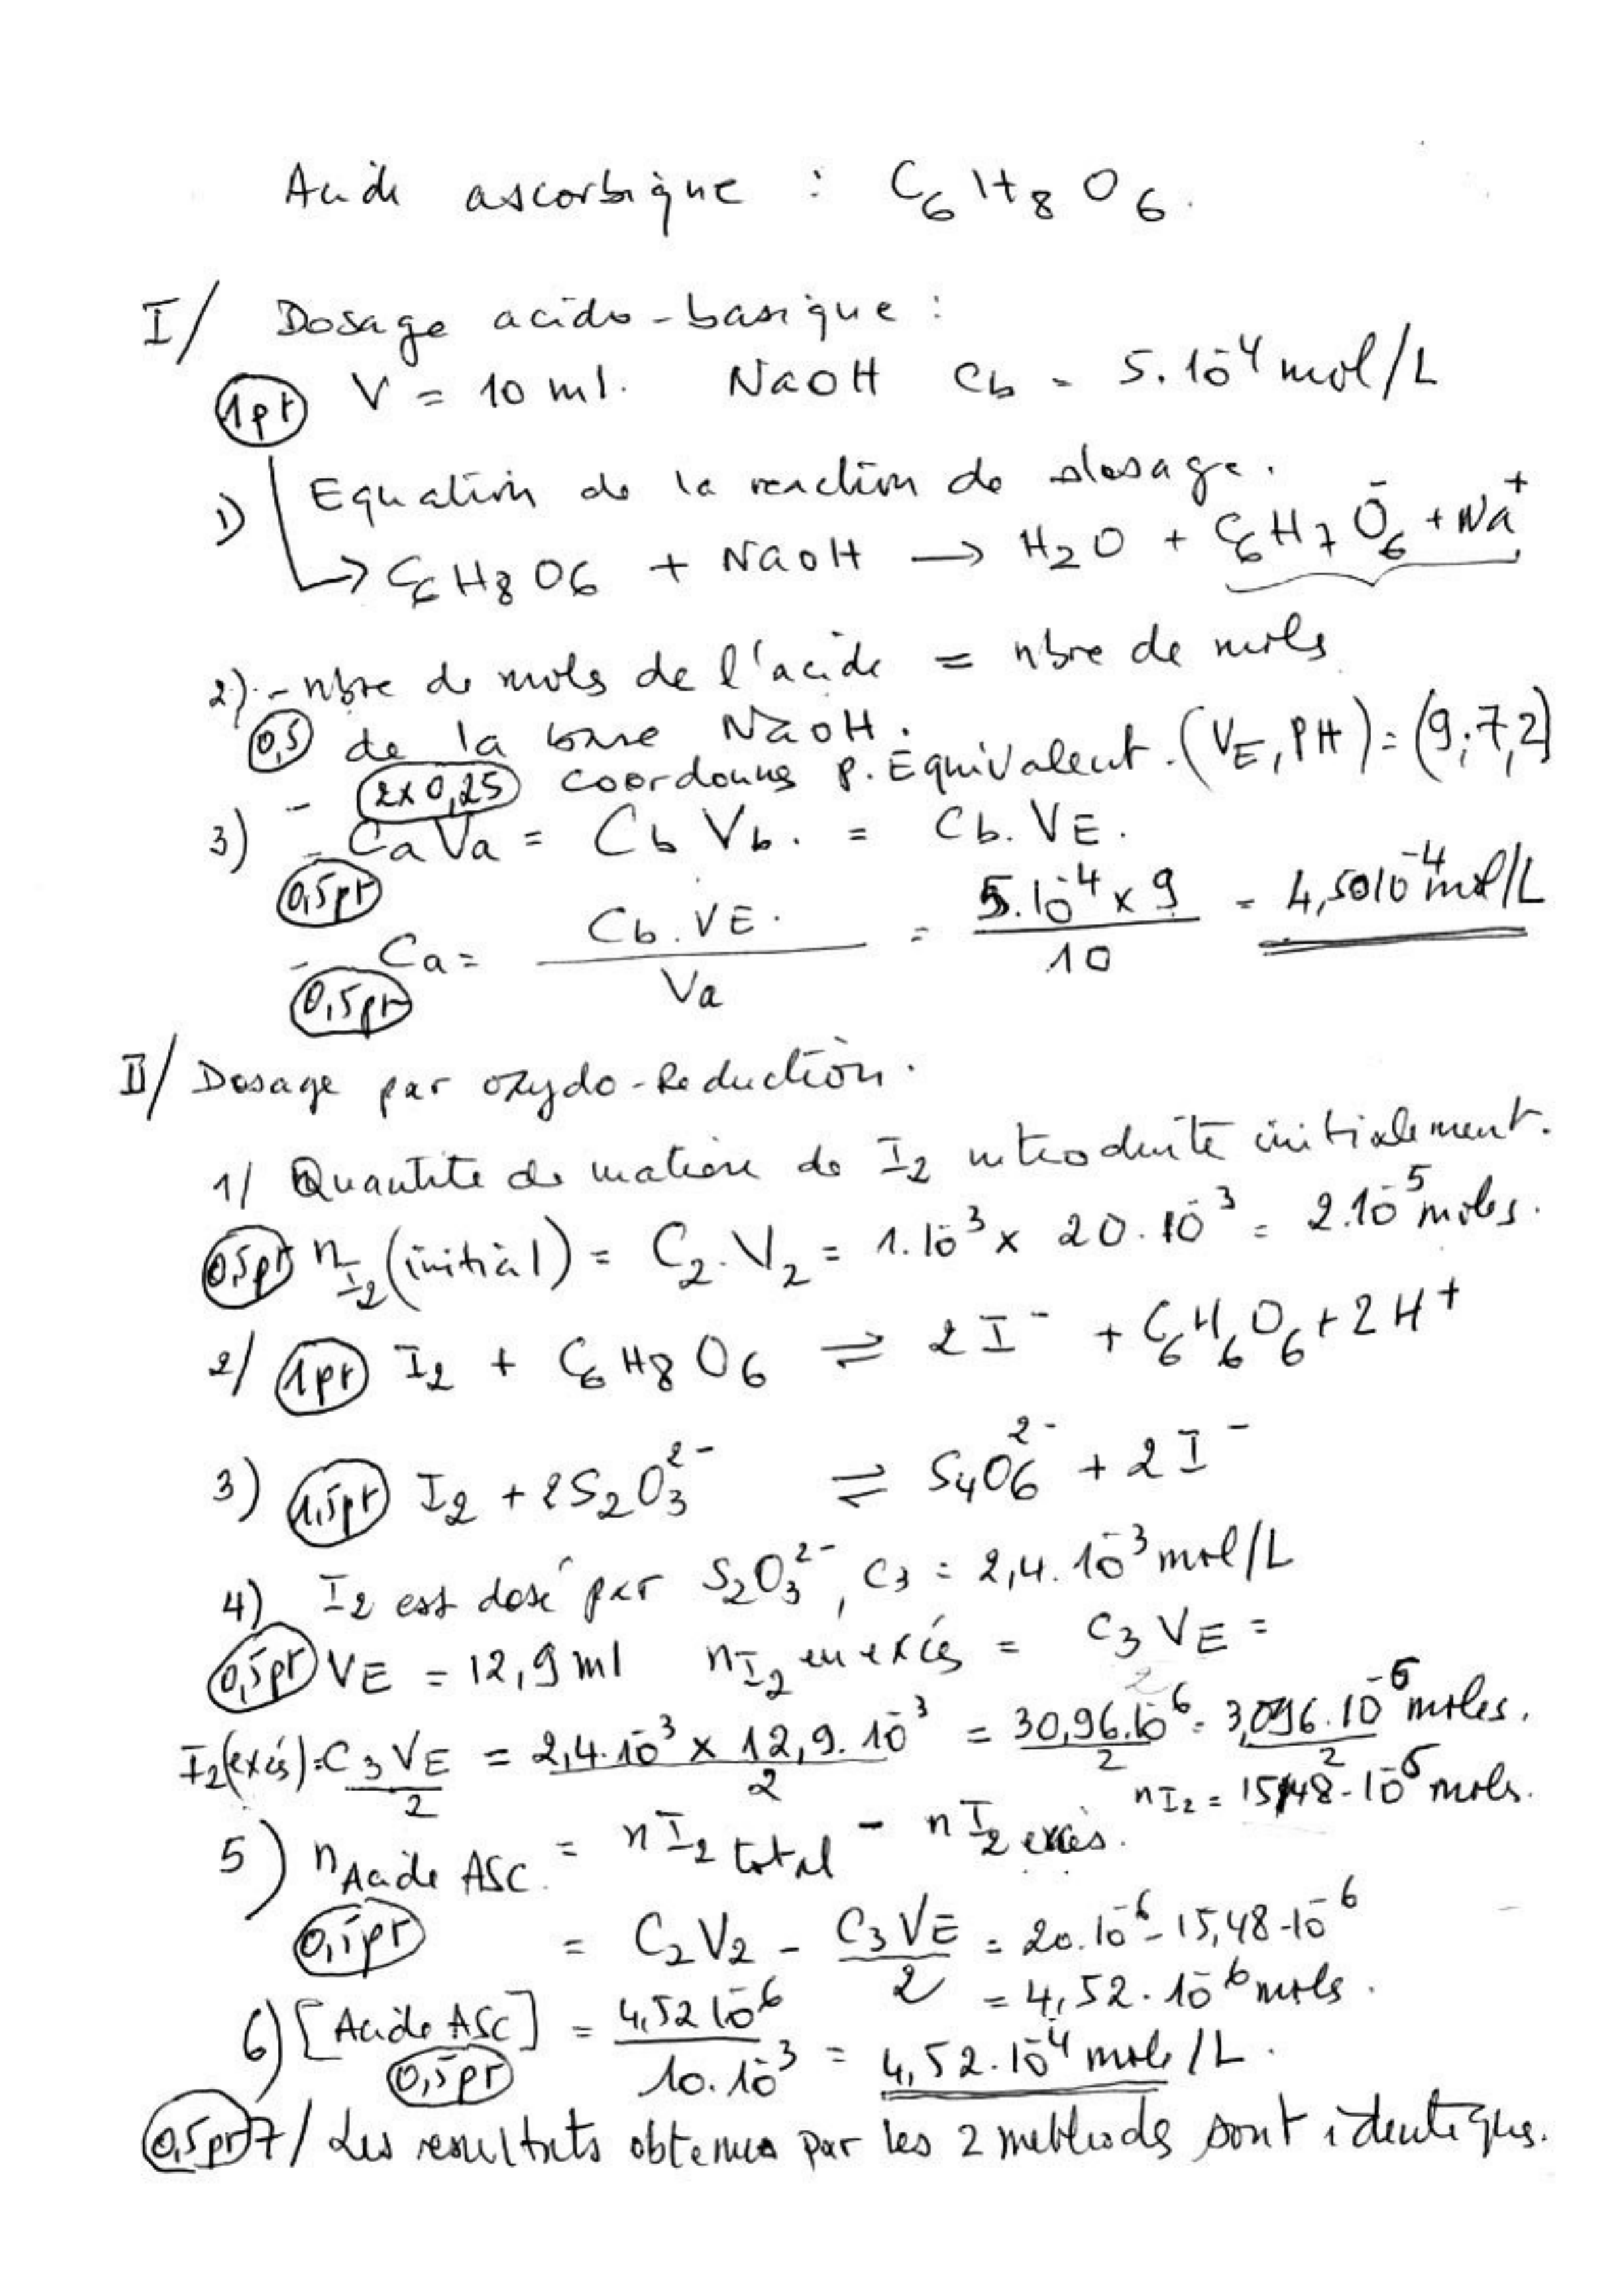 Acide ascorbique : C₆H₈O₆.
I/ Dosage acido-basique :
1pt V = 10 ml. NaOH Cb = 5.10⁻⁴ mol/L
1) Equation de la reaction de dosage.
→ C₆H₈O₆ + NaOH → H₂O + C₆H₇O₆⁻ + Na⁺
2) - nbre de mols de l'acide = nbre de mols
0,5 de la base NaOH.
- 2x0,25 coordonnes p. Equivalent. (VE, PH) = (9; 7,2)
3) - CaVa = Cb Vb. = Cb. VE.
0,5pt
- Ca = Cb.VE. / Va = 5.10⁻⁴ x 9 / 10 = 4,50 10⁻⁴ mol/L
0,5pt
II/ Dosage par oxydo-Reduction.
1/ Quantite de matiere de I₂ introduite initialement.
0,5pt n I₂ (initial) = C₂.V₂ = 1.10⁻³ x 20.10⁻³ = 2.10⁻⁵ moles.
2/ 1pt I₂ + C₆H₈O₆ ⇌ 2I⁻ + C₆H₆O₆ + 2H⁺
3) 1,5pt I₂ + 2S₂O₃²⁻ ⇌ S₄O₆²⁻ + 2I⁻
4) I₂ est dosé par S₂O₃²⁻, C₃ = 2,4.10⁻³ mol/L
0,5pt VE = 12,9 ml nI₂ en excés = C₃VE / 2 =
I₂(excés) = C₃VE / 2 = 2,4.10⁻³ x 12,9.10⁻³ / 2 = 30,96.10⁻⁶ / 2 = 3,096.10⁻⁵ / 2 moles.
nI₂ = 15,48.10⁻⁶ mols.
5) n Acide ASC. = nI₂ total - nI₂ exces.
0,5pt = C₂V₂ - C₃VE / 2 = 20.10⁻⁶ - 15,48.10⁻⁶
= 4,52.10⁻⁶ mols.
6) [Acide ASC] = 4,52 10⁻⁶ / 10.10⁻³ = 4,52.10⁻⁴ mole/L.
0,5pt
0,5pt 7/ Les resultats obtenus par les 2 methods sont identiques.